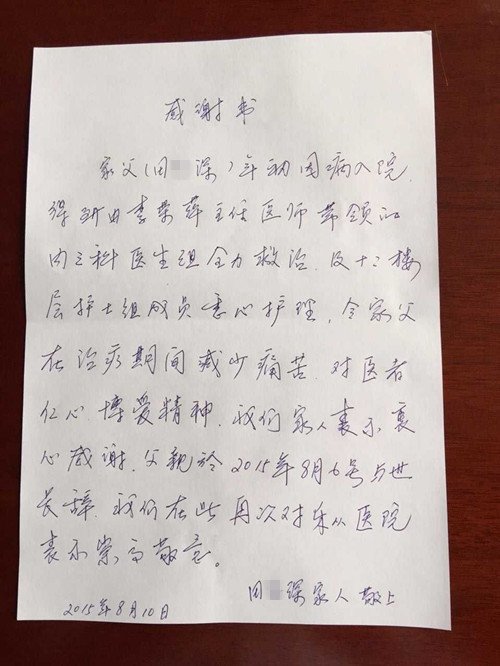 感谢书
家父(田 深)年初因病入院
得到由李荣萍主任医师带领的
内三科医生组全力救治.及十二楼
层护士组成员悉心护理,令家父
在治病期间减少痛苦.对医者
仁心.博爱精神.我们家人表示衷
心感谢.父親於2015年8月6号与世
长辞.我们在此再次对 医院
表示崇高敬意。
田 深家人敬上
2015年8月10日